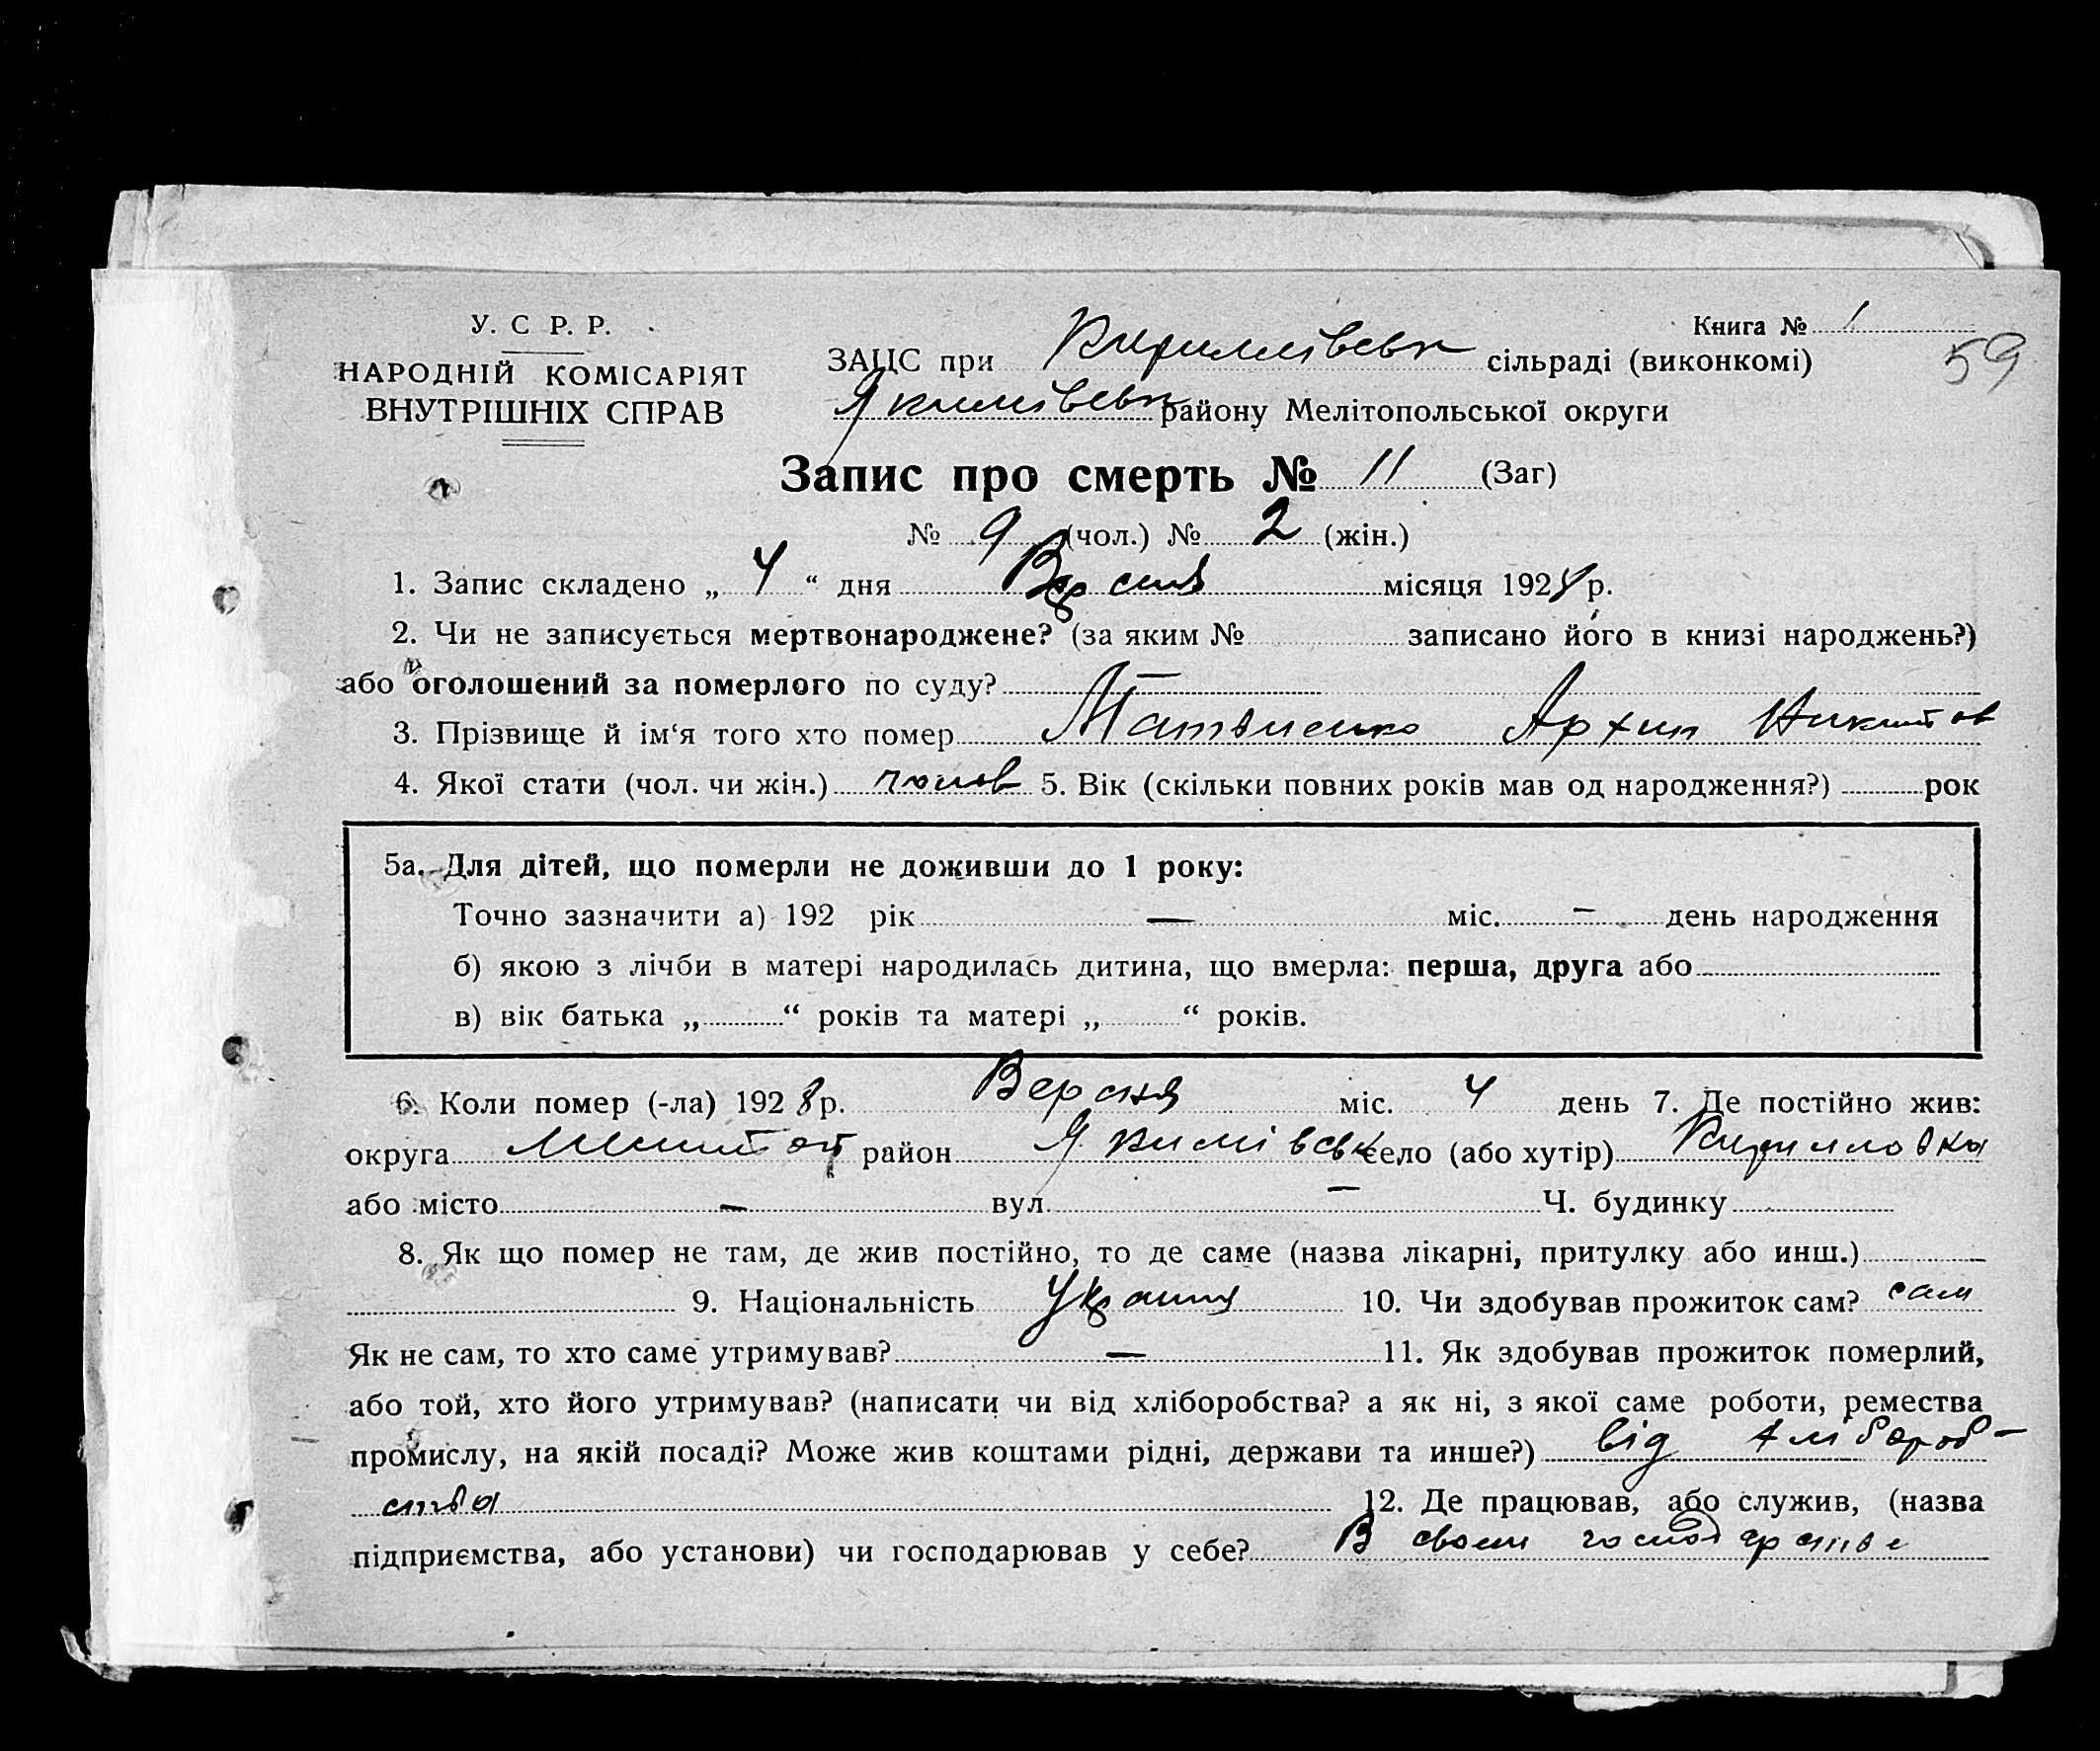 У. С Р. Р.
Книга № 1
59
НАРОДНІЙ КОМІСАРІЯТ
ВНУТРІШНІХ СПРАВ
ЗАЦС при Кириливськ сільраді (виконкомі)
Якимівськ району Мелітопольської округи
Запис про смерть № 11 (Заг)
№ 9 (чол.) № 2 (жін.)
1. Запис складено „ 4 “ дня Версня місяця 1928 р.
2. Чи не записується мертвонароджене? (за яким № записано його в книзі народжень?)
або оголошений за померлого по суду? —
3. Прізвище й ім‘я того хто помер Матвиенко Архип Никитов
4. Якої стати (чол. чи жін.) 5. Вік (скільки повних років мав од народження?) рок
5а. Для дітей, що померли не доживши до 1 року:
Точно зазначити а) 192 рік — міс. — день народження
б) якою з лічби в матері народилась дитина, що вмерла: перша, друга або
в) вік батька „ “ років та матері „ “ років.
6. Коли помер (-ла) 1928 р. Версня міс. 4 день 7. Де постійно жив:
округа Мелитоп район Якимівськ село (або хутір) Кирилловка
або місто — вул. — Ч. будинку
8. Як що помер не там, де жив постійно, то де саме (назва лікарні, притулку або инш.)
9. Національність 10. Чи здобував прожиток сам? сам
Як не сам, то хто саме утримував? — 11. Як здобував прожиток померлий,
або той, хто його утримував? (написати чи від хліборобства? а як ні, з якої саме роботи, ремества
промислу, на якій посаді? Може жив коштами рідні, держави та инше?) від хлібороб-
ства 12. Де працював, або служив, (назва
підприємства, або установи) чи господарював у себе? В своем господарстві